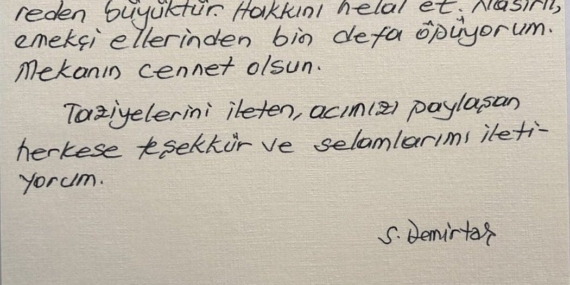 reden büyüktür. Hakkını helal et. Nasırlı,
emekçi ellerinden bin defa öpüyorum.
Mekanın cennet olsun.
Taziyelerini ileten, acımızı paylaşan
herkese teşekkür ve selamlarımı ileti-
yorum.
S. Demirtaş